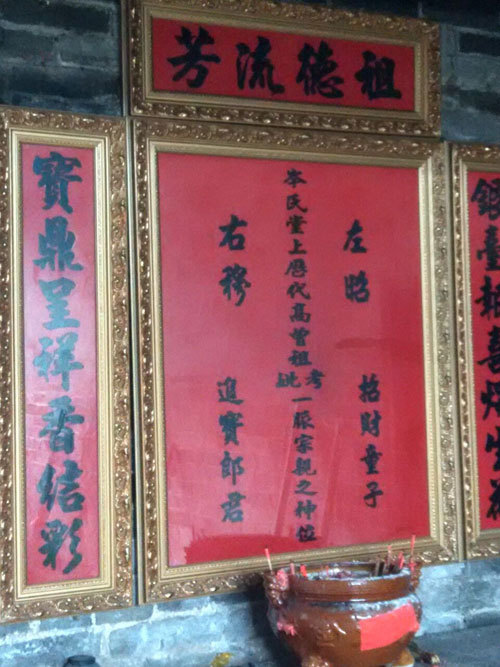 祖德流芳
銀臺報喜燭生花
左昭
招財童子
岑氏堂上歷代高曾祖考妣一脈宗親之神位
右穆
進寶郎君
寶鼎呈祥香結彩